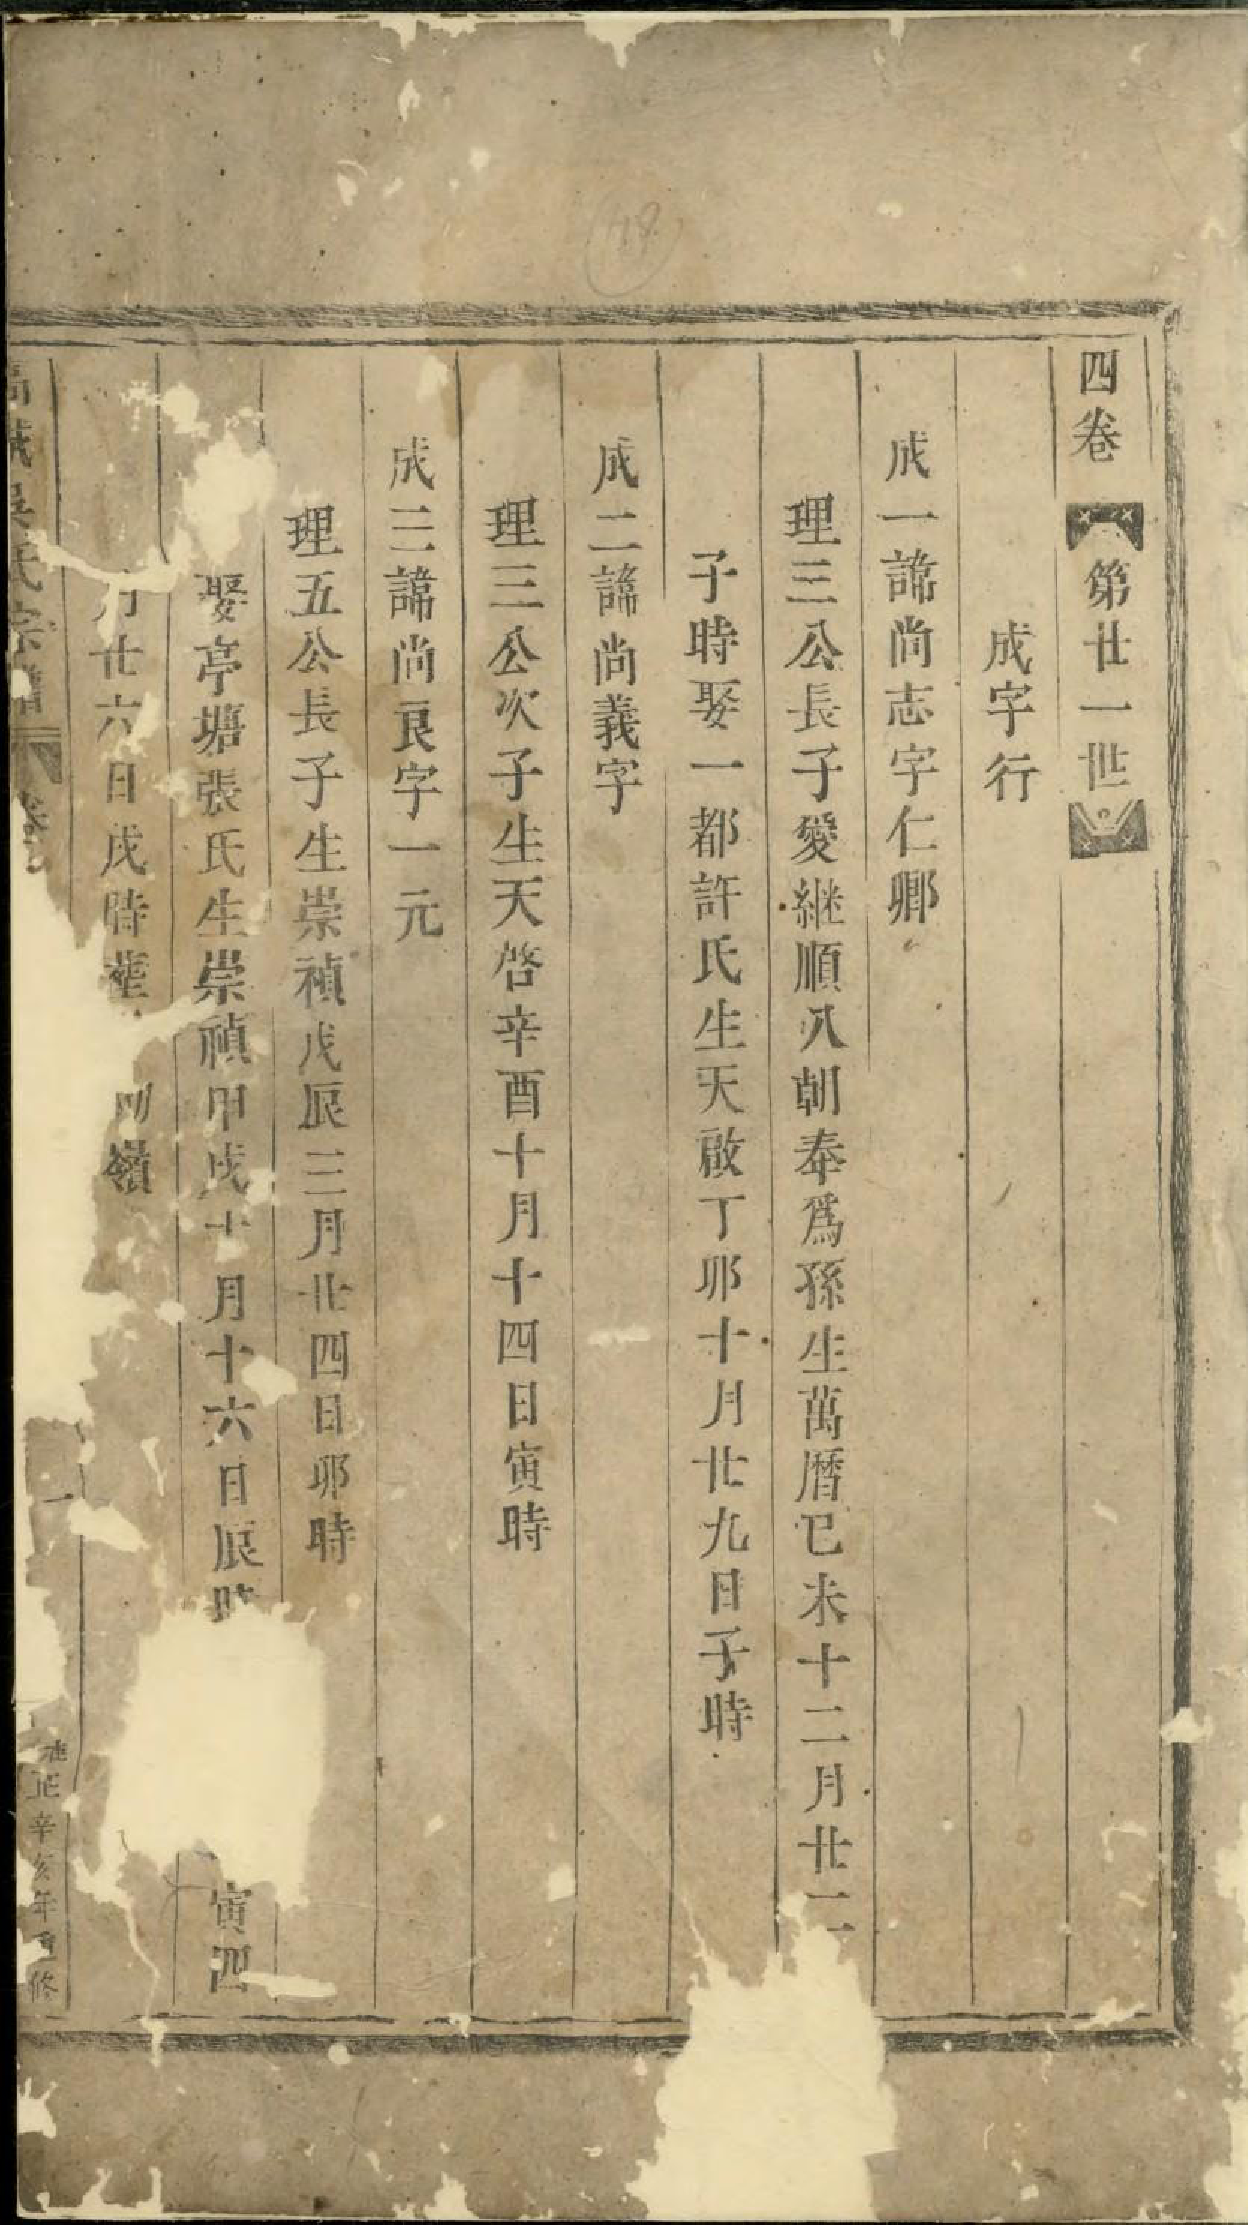 四卷 第廿一世
成字行
成一諱尚志字仁卿
理三公長子愛継順八朝奉爲孫生萬曆已未十二月廿二
子時娶一都許氏生天啟丁夘十月廿九日子時
成二諱尚義字
理三公次子生天啓辛酉十月十四日寅時
成三諱尚良字一元
理五公長子生崇禎戊辰三月廿四日夘時
娶亭塘張氏生崇禎甲戌十月十六日辰時 寅四
月廿六日戌時塟 嶺
吳氏宗譜 卷 一 雍正辛亥年重修